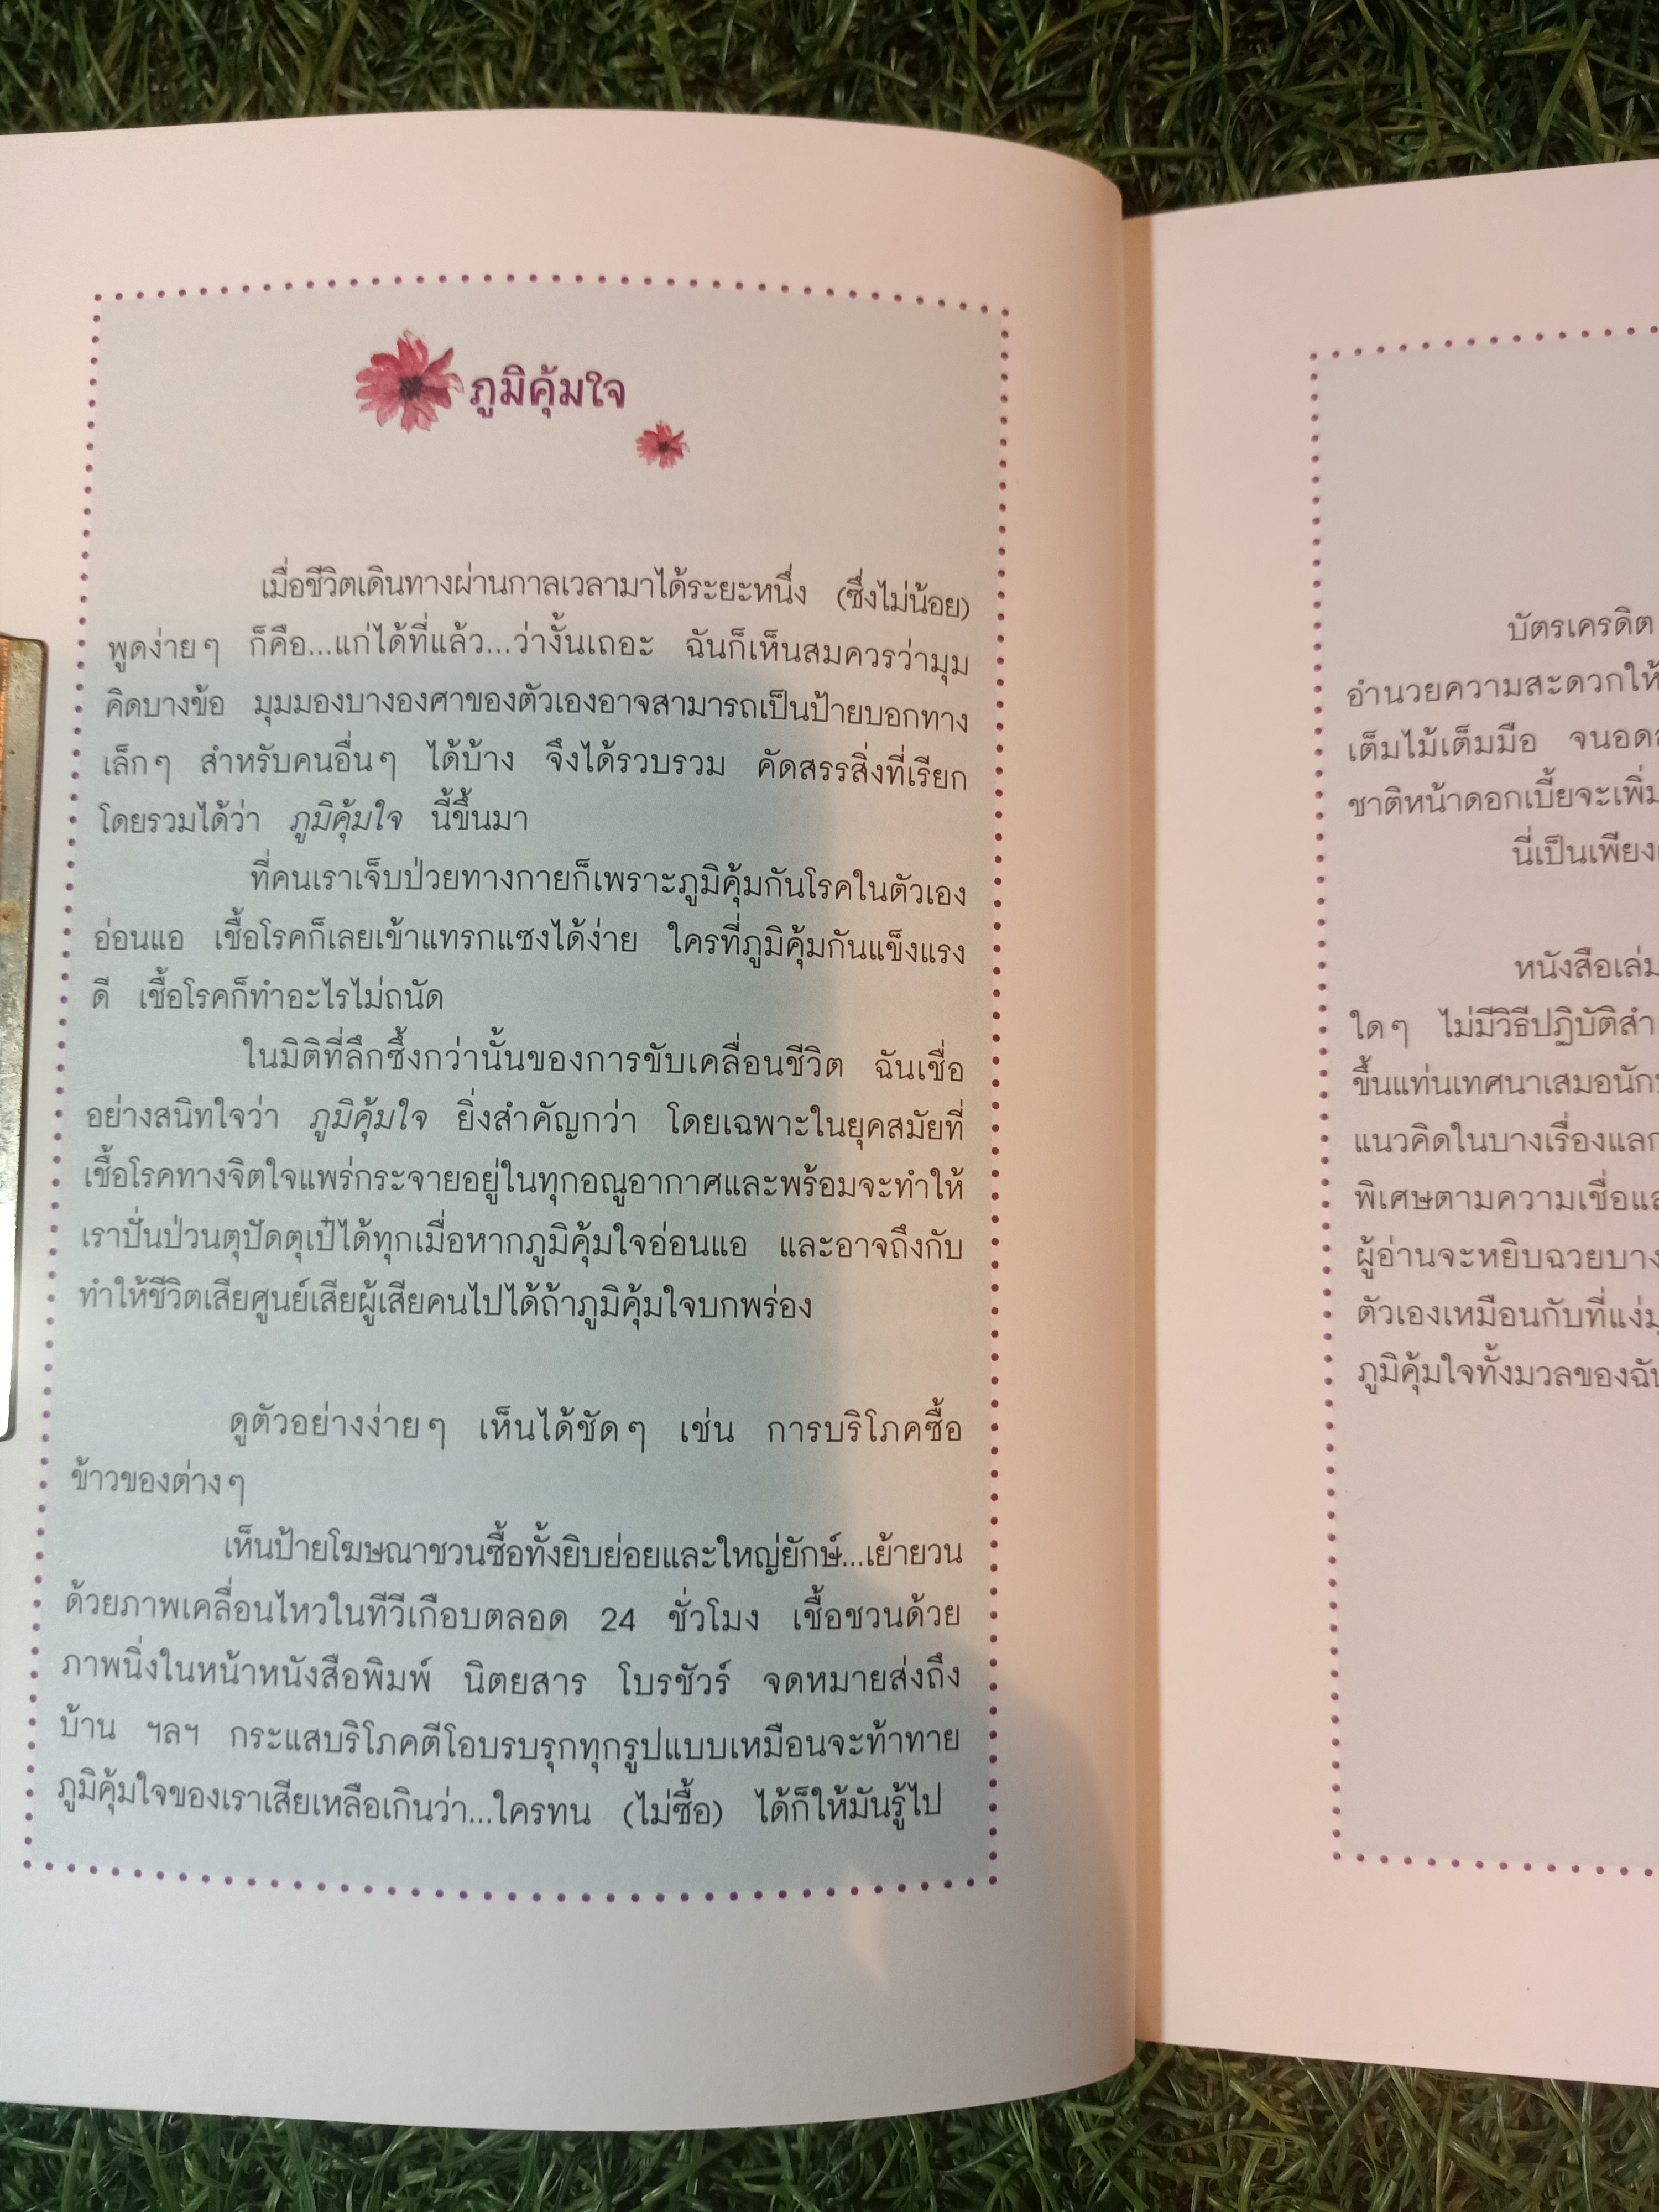 ภูมิคุ้มใจ
เมื่อชีวิตเดินทางผ่านกาลเวลามาได้ระยะหนึ่ง (ซึ่งไม่น้อย)
พูดง่ายๆ ก็คือ...แก่ได้ที่แล้ว...ว่างั้นเถอะ ฉันก็เห็นสมควรว่ามุม
คิดบางข้อ มุมมองบางองศาของตัวเองอาจสามารถเป็นป้ายบอกทาง
เล็กๆ สำหรับคนอื่นๆ ได้บ้าง จึงได้รวบรวม คัดสรรสิ่งที่เรียก
โดยรวมได้ว่า ภูมิคุ้มใจ นี้ขึ้นมา
ที่คนเราเจ็บป่วยทางกายก็เพราะภูมิคุ้มกันโรคในตัวเอง
อ่อนแอ เชื้อโรคก็เลยเข้าแทรกแซงได้ง่าย ใครที่ภูมิคุ้มกันแข็งแรง
ดี เชื้อโรคก็ทำอะไรไม่ถนัด
ในมิติที่ลึกซึ้งกว่านั้นของการขับเคลื่อนชีวิต ฉันเชื่อ
อย่างสนิทใจว่า ภูมิคุ้มใจ ยิ่งสำคัญกว่า โดยเฉพาะในยุคสมัยที่
เชื้อโรคทางจิตใจแพร่กระจายอยู่ในทุกอณูอากาศและพร้อมจะทำให้
เราปั่นป่วนตุปัดตุเป๋ได้ทุกเมื่อหากภูมิคุ้มใจอ่อนแอ และอาจถึงกับ
ทำให้ชีวิตเสียศูนย์เสียผู้เสียคนไปได้ถ้าภูมิคุ้มใจบกพร่อง
ดูตัวอย่างง่ายๆ เห็นได้ชัดๆ เช่น การบริโภคซื้อ
ข้าวของต่างๆ
เห็นป้ายโฆษณาชวนซื้อทั้งยิบย่อยและใหญ่ยักษ์...เย้ายวน
ด้วยภาพเคลื่อนไหวในทีวีเกือบตลอด 24 ชั่วโมง เชื้อชวนด้วย
ภาพนิ่งในหน้าหนังสือพิมพ์ นิตยสาร โบรชัวร์ จดหมายส่งถึง
บ้าน ฯลฯ กระแสบริโภคตีโอบรบรุกทุกรูปแบบเหมือนจะท้าทาย
ภูมิคุ้มใจของเราเสียเหลือเกินว่า...ใครทน (ไม่ซื้อ) ได้ก็ให้มันรู้ไป
บัตรเครดิต
อำนวยความสะดวกให้
เต็มไม้เต็มมือ จนอด
ชาติหน้าดอกเบี้ยจะเพิ่ม
นี่เป็นเพียง
หนังสือเล่ม
ใดๆ ไม่มีวิธีปฏิบัติ
ขึ้นแท่นเทศนาเสมอ
แนวคิดในบางเรื่อง
พิเศษตามความเชื่อ
ผู้อ่านจะหยิบฉวยบาง
ตัวเองเหมือนกับที่
ภูมิคุ้มใจทั้งมวลของฉัน